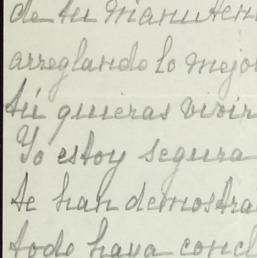 de tu manuten
arreglando lo mejo
tú quieras vivir
Yo estoy segura
te han demostra
todo haya concl